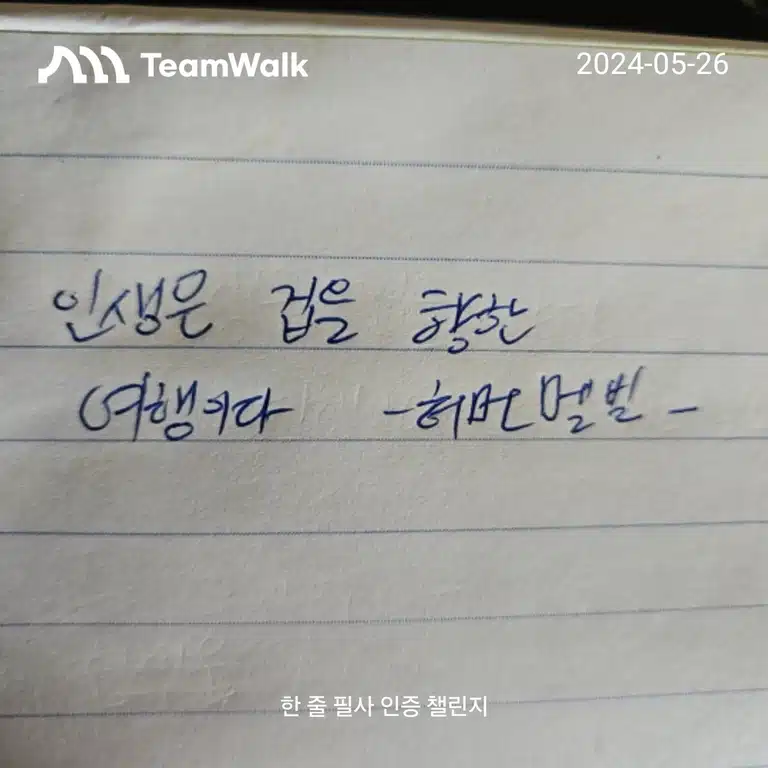 TeamWalk
2024-05-26
인생은 겁을 향한
여행이다 -허먼 멜빌-
한 줄 필사 인증 챌린지